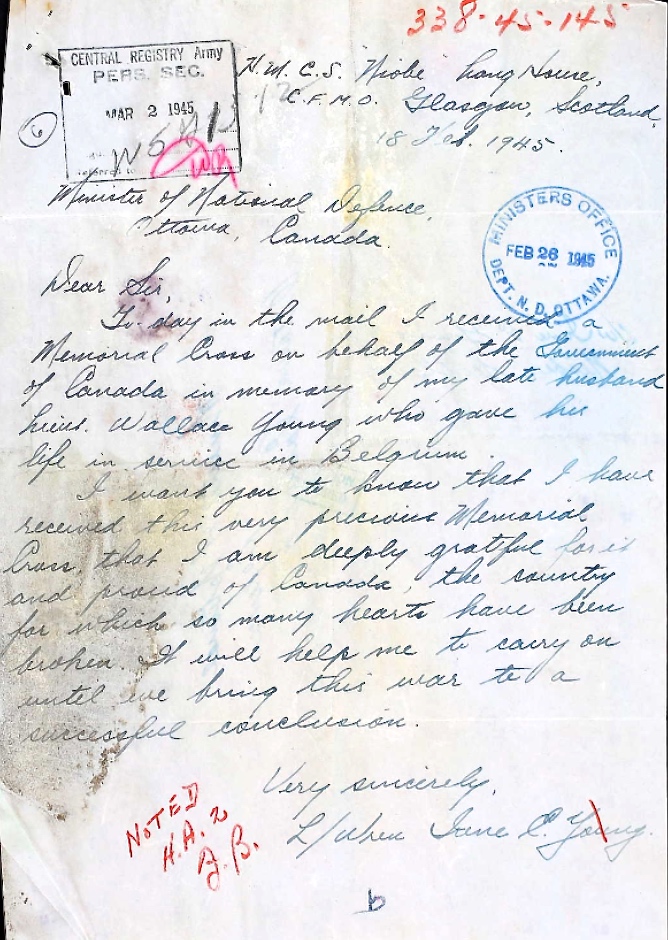 338-45-145
CENTRAL REGISTRY Army
PERS. SEC.
MAR 2 1945
6
H.M.C.S. "Niobe" Lang House,
C.F.M.O. Glasgow, Scotland,
18 Feb. 1945.
Minister of National Defence,
Ottawa, Canada.
MINISTERS OFFICE
FEB 26 1945
DEPT. N. D. OTTAWA.
Dear Sir,
To-day in the mail I received a
Memorial Cross on behalf of the Government
of Canada in memory of my late husband
Lieut. Wallace Young who gave his
life in service in Belgium.
I want you to know that I have
received this very precious Memorial
Cross, that I am deeply grateful for it
and proud of Canada, the country
for which so many hearts have been
broken. It will help me to carry on
until we bring this war to a
successful conclusion.
Very sincerely,
L/Wren Jane C. Young.
NOTED
H.A. 2
J.B.
b